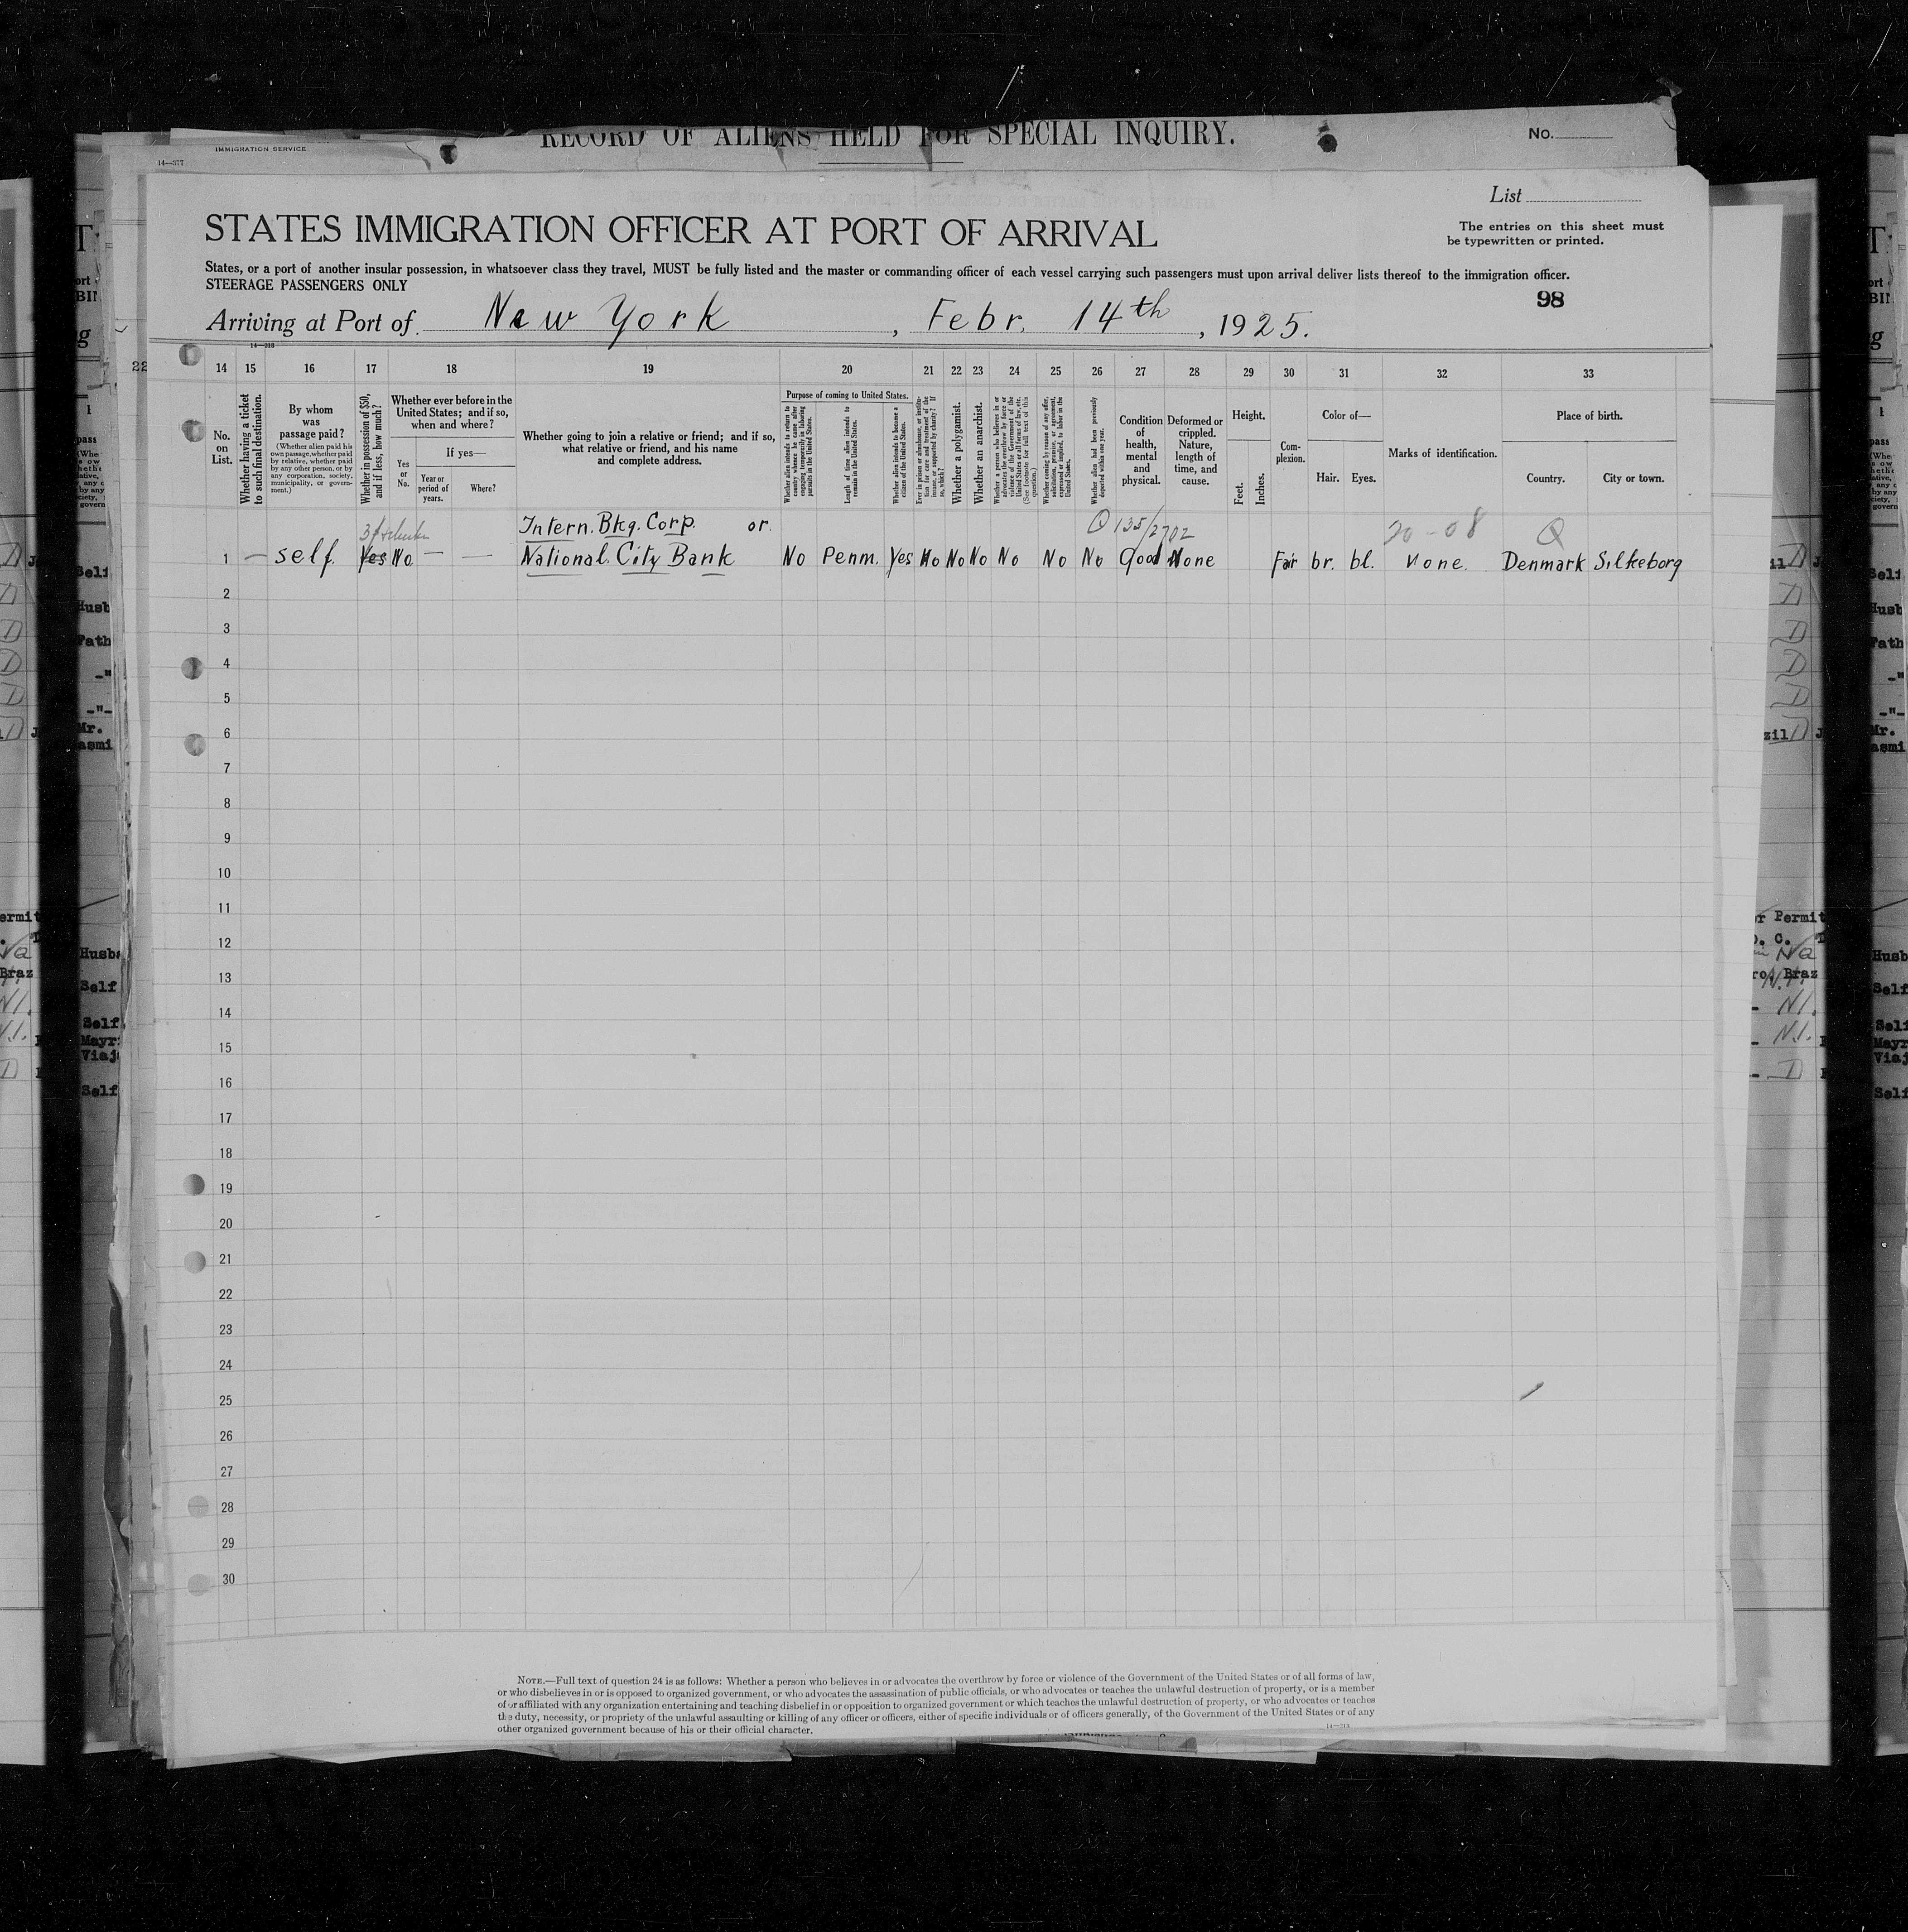 RECORD OF ALIENS HELD FOR SPECIAL INQUIRY.
No.
IMMIGRATION SERVICE
14—377
List
STATES IMMIGRATION OFFICER AT PORT OF ARRIVAL
The entries on this sheet must
be typewritten or printed.
States, or a port of another insular possession, in whatsoever class they travel, MUST be fully listed and the master or commanding officer of each vessel carrying such passengers must upon arrival deliver lists thereof to the immigration officer.
STEERAGE PASSENGERS ONLY
98
Arriving at Port of New York, Febr. 14th, 1925.
14 15 16 17 18 19 20 21 22 23 24 25 26 27 28 29 30 31 32 33
No. on List.
Whether having a ticket to such final destination.
By whom was passage paid?
(Whether alien paid his own passage, whether paid by relative, whether paid by any other person, or by any corporation, society, municipality, or government.)
Whether in possession of $50, and if less, how much?
Whether ever before in the United States; and if so, when and where?
Yes or No.
If yes—
Year or period of years.
Where?
Whether going to join a relative or friend; and if so, what relative or friend, and his name and complete address.
Purpose of coming to United States.
Whether alien intends to return to country whence he came after engaging temporarily in laboring pursuits in the United States.
Length of time alien intends to remain in the United States.
Whether alien intends to become a citizen of the United States.
Ever in prison or almshouse, or institution for care and treatment of the insane, or supported by charity? If so, which?
Whether a polygamist.
Whether an anarchist.
Whether a person who believes in or advocates the overthrow by force or violence of the Government of the United States or all forms of law, etc. (See footnote for full text of this question.)
Whether coming by reason of any offer, solicitation, promise, or agreement, expressed or implied, to labor in the United States.
Whether alien had been previously deported within one year.
Condition of health, mental and physical.
Deformed or crippled. Nature, length of time, and cause.
Height.
Feet. Inches.
Complexion.
Color of—
Hair. Eyes.
Marks of identification.
Place of birth.
Country. City or town.
Intern. Bkg. Corp. or Q 135/2702 20-08 Q
1 — self. Yes No — — National City Bank No Penm. Yes No No No No No No Good None Fair br. bl. None. Denmark Silkeborg
2
3
4
5
6
7
8
9
10
11
12
13
14
15
16
17
18
19
20
21
22
23
24
25
26
27
28
29
30
NOTE.—Full text of question 24 is as follows: Whether a person who believes in or advocates the overthrow by force or violence of the Government of the United States or of all forms of law,
or who disbelieves in or is opposed to organized government, or who advocates the assassination of public officials, or who advocates or teaches the unlawful destruction of property, or is a member
of or affiliated with any organization entertaining and teaching disbelief in or opposition to organized government or which teaches the unlawful destruction of property, or who advocates or teaches
the duty, necessity, or propriety of the unlawful assaulting or killing of any officer or officers, either of specific individuals or of officers generally, of the Government of the United States or of any
other organized government because of his or their official character.